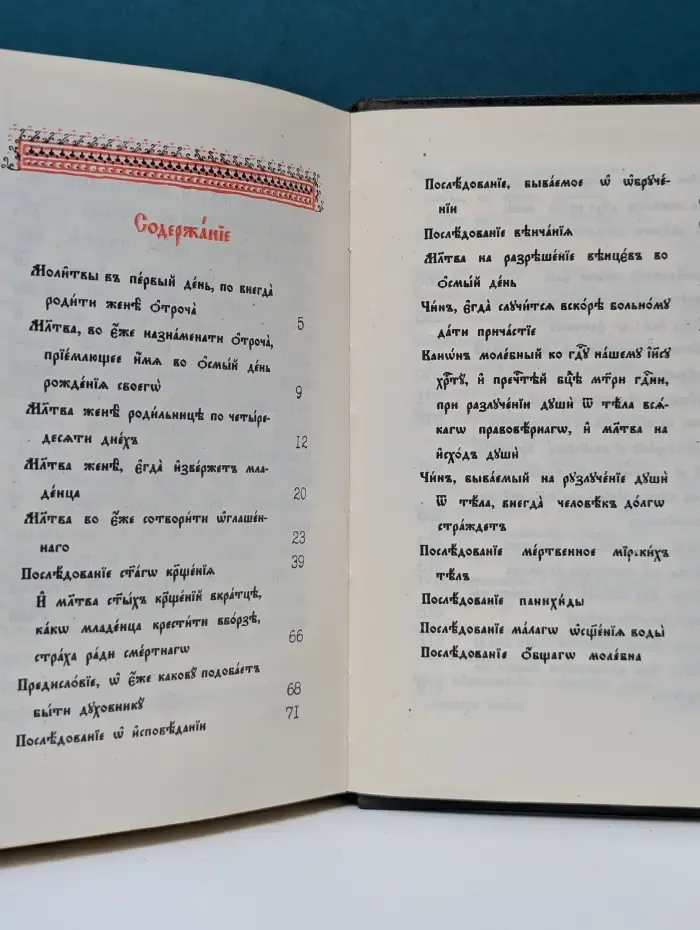 Содержа́нїе
Моли́твы въ пе́рвый де́нь, по внегда̀
роди́ти женѣ̀ ѻ҆троча̀
5
Мл҃тва, во є҆́же назна́менати ѻ҆троча̀,
прїе́млющее и҆́мя во ѻ҆смы́й де́нь
рожде́нїѧ своегѡ̀
9
Мл҃тва женѣ̀ роди́льницѣ по четы́ре-
десѧти дне́хъ
12
Мл҃тва женѣ̀, є҆гда̀ и҆зве́ржетъ мла-
де́нца
20
Мл҃тва во є҆́же сотвори́ти ѡ҆глаше́н-
наго
23
Послѣ́дованїе ст҃а́гѡ кр҃ще́нїѧ
39
И҆ мл҃тва ст҃ы́хъ кр҃ще́нїй вкра́тцѣ,
ка́кѡ младе́нца крести́ти вбо́рзѣ,
стра́ха ра́ди сме́ртнагѡ
66
Предисло́вїе, ѡ҆ є҆́же каковꙋ̀ подоба́етъ
бы́ти дꙋхо́вникꙋ
68
Послѣ́дованїе ѡ҆ и҆сповѣ́данїи
71
Послѣ́дованїе, быва́емое ѡ҆ ѡ҆брꙋче́-
нїи
Послѣ́дованїе вѣнча́нїѧ
Мл҃тва на разрѣше́нїе вѣнцє́въ во
ѻ҆смы́й де́нь
Чи́нъ, є҆гда̀ слꙋчи́тсѧ вско́рѣ больно́мꙋ
да́ти прича́стїе
Канѡ́нъ моле́бный ко гдⷭ҇ꙋ на́шемꙋ і҆и҃сꙋ
хрⷭ҇тꙋ̀, и҆ пречⷭ҇тѣй бцⷣѣ мт҃ри гдⷭ҇ни,
при разлꙋче́нїи дꙋшѝ ѿ тѣ́ла всѧ́-
кагѡ правовѣ́рнагѡ, и҆ мл҃тва на
и҆схо́дъ дꙋшѝ
Чи́нъ, быва́емый на рꙋзлꙋче́нїе дꙋшѝ
ѿ тѣ́ла, внегда̀ человѣ́къ до́лгѡ
стра́ждетъ
Послѣ́дованїе ме́ртвенное мїрски́хъ
тѣ́лъ
Послѣ́дованїе панихи́ды
Послѣ́дованїе ма́лагѡ ѡ҆сщ҃е́нїѧ воды̀
Послѣ́дованїе ѻ҆́бщагѡ моле́бна